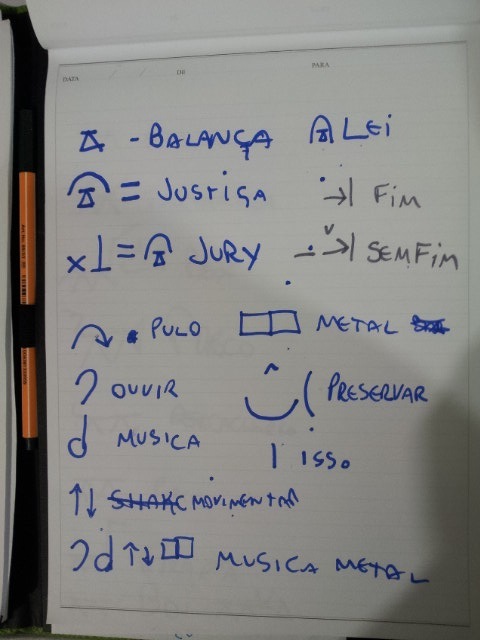 DATA DE PARA
- BALANÇA LEI
= JUSTIÇA → | FIM
x⊥ = JURY → | SEM FIM
PULO METAL
OUVIR PRESERVAR
MUSICA | ISSO
↑↓ SHAKE MOVIMENTAR
↑↓ MUSICA METAL